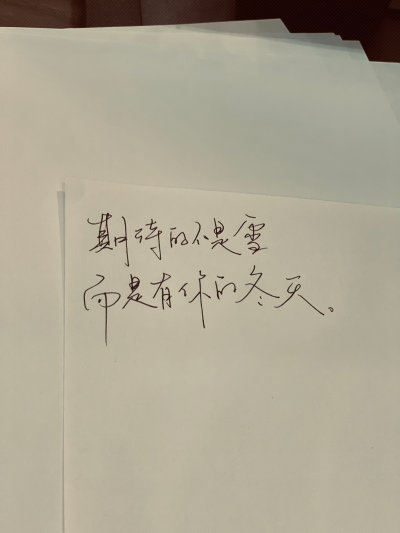 期待的不是雪
而是有你的冬天。